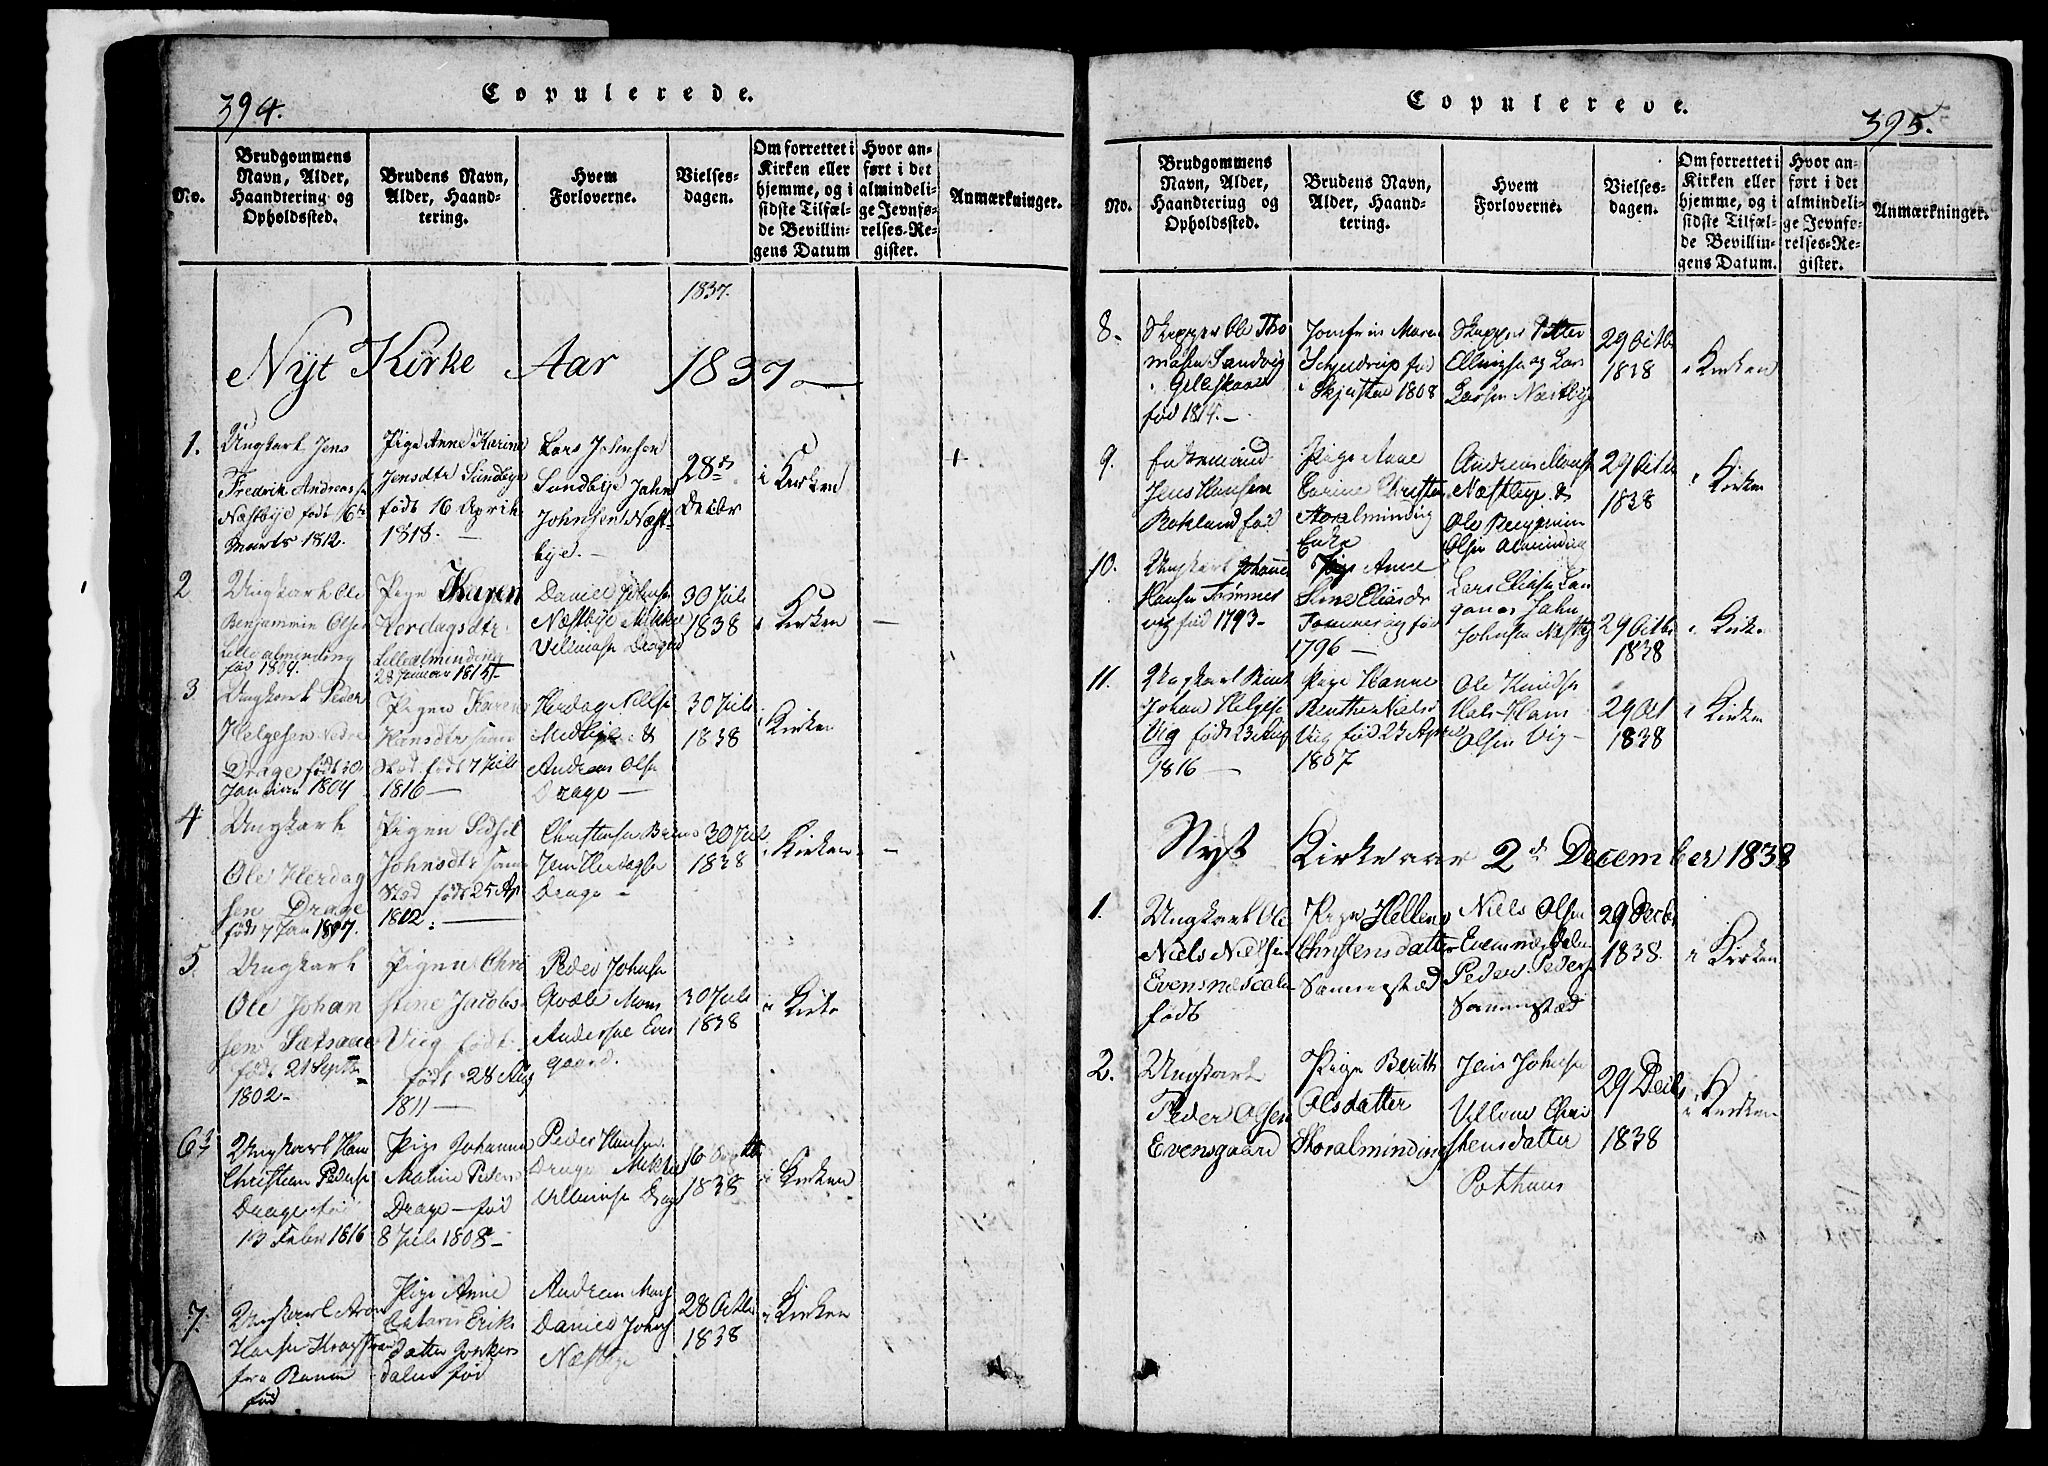 394.
Copulerede.
No.
Brudgommens
Navn, Alder,
Haandtering og
Opholdssted.
Brudens Navn,
Alder, Haand-
tering.
Hvem
Forloverne.
Vielses-
dagen.
Om forrettet i
Kirken eller
hjemme, og i
sidste Tilfæl-
de Bevillin-
gens Datum
Hvor an-
ført i det
almindeli-
ge Jevnfø-
relses-Re-
gister.
Anmærkninger.
1837.
Nyt Kirke Aar 1837
1.
Ungkarl Jens
Fredrik Andreas
Næstbye født 16de
Marts 1812.
Pige Anne Karine
Jensdtr Sundbye
født 16 April
1818.
Lars Johnsen
Sundbye Jahn
Johnsen Næst-
bye.
28de
Decbr
i Kirken
2
Ungkarl Ole
Benjammin Olsen
Lillealminding
fød 1809.
Pige Karen
Herdagsdtr
Lillealminding
28 Januar 1815
Daniel Johnse
Næstbye Mikkel
Villumse Drage
30 Juli
1838
i Kirken
3
Ungkarl Peder
Helgesen Nedre
Drage født 30
Januar 1809
Pigen Karen
Hansdtr samme
Stæd født 7 Juli
1816
Herdag Nilse
Medbye &
Andreas Olse
Drage
30 Juli
1838
i Kirken
4
Ungkarl
Ole Herdag
sen Drage
født 7 Jan 1807.
Pigen Sidsel
Johnsdtr samme
Stæd født 25 Ap
1802.
Christensen
Jens Herdagse
Drage
30 Juli
1838
i Kirken
5
Ungkarl
Ole Johan
sen
født 21 Septbr
1802
Pigen Chri
stine Jacobs
Viig født
født 28 Aug
1811
Peder Johnse
Qvæle Mons
Anderse Evens
gaard.
30 Juli
1838
i Kirke
6
Ungkarl Hans
Christian Pederse
Drage fød
13 Febr 1816
Pige Johanna
Malene Peders
Drage fød
8 Juli 1808
Peder Hansen
Drage Mikkel
Villumse Drage
1838
i Kirken
7.
Ungkarl Aron
Hansen
fra Ranen
fød
Pige Anne
Cathrine Eriks
datter Junkers
dalen fød
Andreas Mons
Daniel Johns
Næstbye
28 Octbr
1838
i Kirken
Copulerede.
395.
No.
Brudgommens
Navn, Alder,
Haandtering og
Opholdssted.
Brudens Navn,
Alder, Haand-
tering.
Hvem
Forloverne.
Vielses-
dagen.
Om forrettet i
Kirken eller
hjemme, og i
sidste Tilfæl-
de Bevillin-
gens Datum.
Hvor an-
ført i det
almindeli-
ge Jevnfø-
relses-Re-
gister.
Anmærkninger.
8.
Skipper Ole Tho
masen Sandvig
i Gilleskaal
fød 1814.
Jomfru Maren
Schjeldrup fød
i Skjersta 1808
Skipper Petter
Ellingse og Lars
Larsen Næstbye
29 Octbr
1838
i Kirken
9.
Enkemand
Jens Hansen
Rokland fød
Pige Anne
Carine Christens
Storalminding
Enke
Andreas Mons
Næstbye &
Ole Benjamin
Olsen Alminding
29 Octbr
1838
i Kirken
10.
Ungkarl Johannes
Hansen Tømmer
vig fød 1793
Pige Anne
Stine Eliasdr
Tømmervig fød
1796
Lars Eliasen Lan
ganes Jahn
Johnsen Næstby
29 Octbr
1838
i Kirken
11.
Ungkarl Bent
Johan Helgese
Vig født 23 Aug
1816
Pige Hanne
Benthe Niels
Viig fød 23 April
1807
Ole Knudse
Hals Hans
Olsen Vig
29 Oct
1838
i Kirken
Nyt Kirkeaar 2d December 1838
1.
Ungkarl Ole
Niels Nielsen
Evensnæsdalen
født
Pige Hellene
Christensdatter
Sommerstæd
Niels Olsen
Evensnæsdalen
Peder Pederse
Sommerstæd
29 Decbr
1838.
i Kirken
2.
Ungkarl
Peder Olsen
Evensgaard
Pige Berith
Olsdatter
Storalminding
Jens Johnse
Villum Chri
stensdatter
Pothuus
29 Decbr
1838
i Kirken